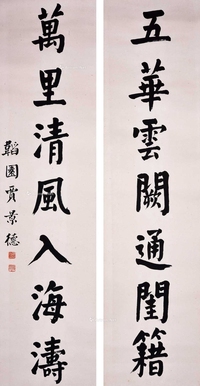 五華雲闕通閨籍
萬里清風入海濤
韜園賈景德